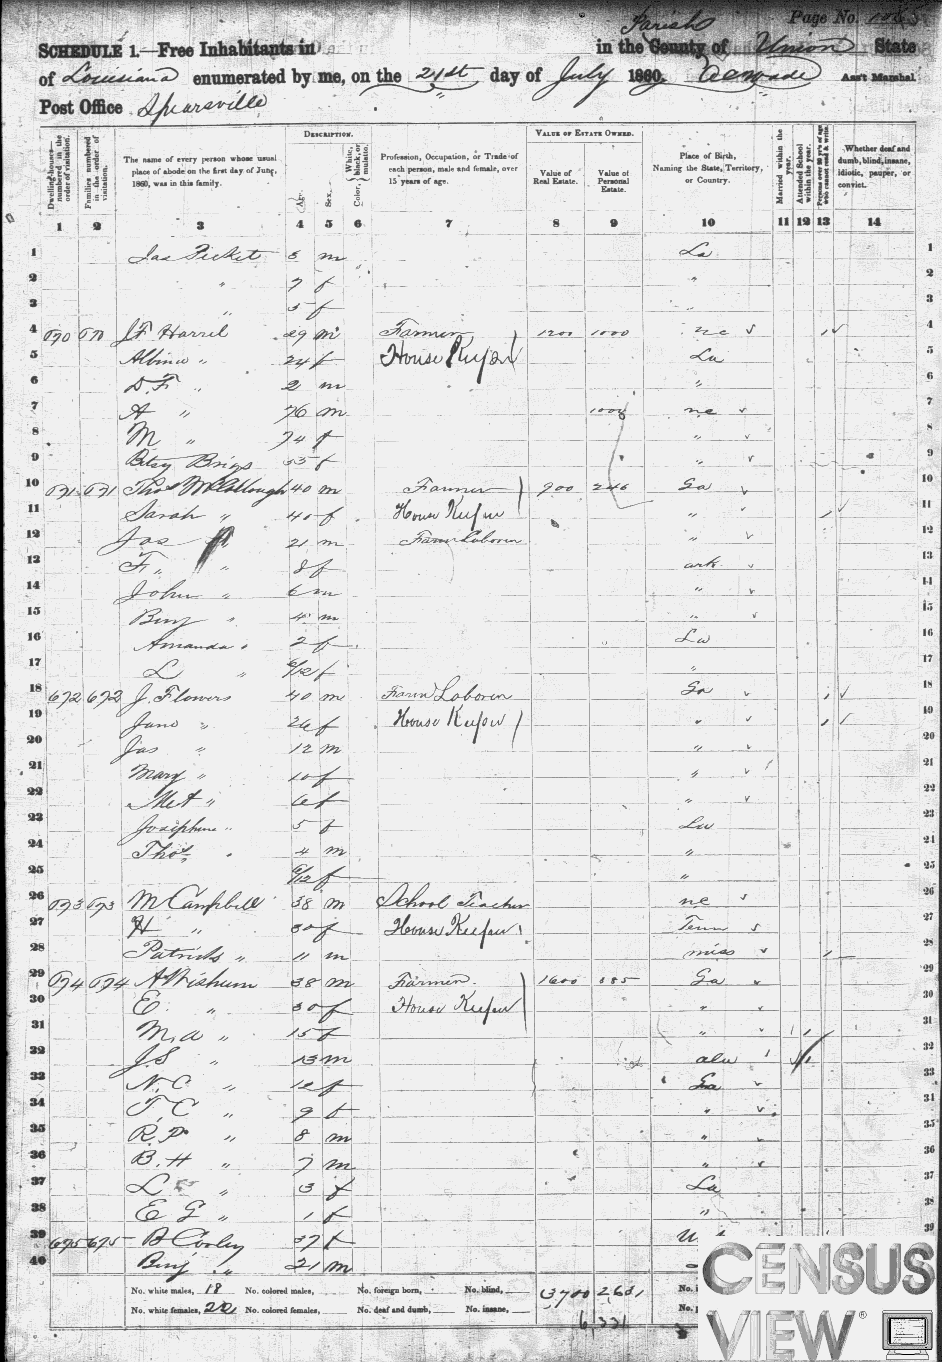 Page No.
SCHEDULE 1.—Free Inhabitants in in the County of Parish Union State
of Louisiana enumerated by me, on the 21st day of July 1860. Ass't Marshal
Post Office Spearsville
DESCRIPTION. VALUE OF ESTATE OWNED.
Dwelling-houses—numbered in the order of visitation.
Families numbered in the order of visitation.
The name of every person whose usual place of abode on the first day of June, 1860, was in this family.
Age.
Sex.
Color, White, black, or mulatto.
Profession, Occupation, or Trade of each person, male and female, over 15 years of age.
Value of Real Estate.
Value of Personal Estate.
Place of Birth, Naming the State, Territory, or Country.
Married within the year.
Attended School within the year.
Persons over 20 y'rs of age who cannot read & write.
Whether deaf and dumb, blind, insane, idiotic, pauper, or convict.
1 2 3 4 5 6 7 8 9 10 11 12 13 14
1 Jas Picket m La 1
2 " 7 f " 2
3 " 5 f " 3
4 670 670 J F Harrel 29 m Farmer 1200 1000 nc 4
5 " 24 f House Keeper La 5
6 D. F. " 2 m " 6
7 A " 76 m 1000 nc 7
8 M " 74 f " 8
9 Betsy f " 9
10 671 671 Thos McCollough 40 m Farmer 900 Ga 10
11 Sarah " 40 f House Keeper " 11
12 Jas " 21 m Farm Laborer " 12
13 F. " 8 f ark 13
14 John " 6 m " 14
15 Benj " 4 m " 15
16 Amanda " 2 f La 16
17 L " /12 f " 17
18 672 672 J. Flowers 40 m Farm Laborer Ga 18
19 Jane " 26 f House Keeper " 19
20 Jas " 12 m " 20
21 Mary " 10 f " 21
22 " 6 f " 22
23 Josiphine " 5 f La 23
24 Thos " 4 m " 24
25 /12 f " 25
26 673 673 M Campbell 38 m School Teacher nc 26
27 H " 30 f House Keeper Tenn 27
28 Patrick " 11 m miss 28
29 674 674 38 m Farmer 1600 885 Ga 29
30 E. " 30 f House Keeper " 30
31 M. A " 15 f " 31
32 J. S " 13 m ala 32
33 N. C " f Ga 33
34 T C " 9 f " 34
35 R. P. " 8 m " 35
36 B. H " 7 m " 36
37 L " 3 f La 37
38 E G " 1 f " 38
39 675 675 B Cooley 37 f 39
40 Benj " 21 m
No. white males, 18 No. colored males, No. foreign born, No. blind, 3700
No. white females, No. colored females, No. deaf and dumb, No. insane,
6,331
CENSUS
VIEW®